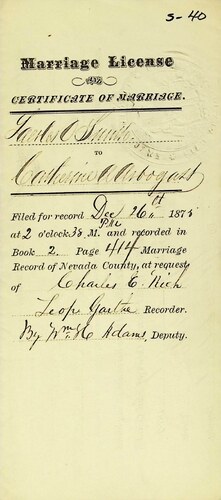 S-40
Marriage License
AND
CERTIFICATE OF MARRIAGE.
Smith
TO
Catherine A Arbogast
Filed for record Dec 26th 1875
at 2 o'clock 38 PM M. and recorded in
Book 2. Page 414 Marriage
Record of Nevada County, at request
of Charles E. Rich
Leop. Garthe Recorder.
By Wm K Adams, Deputy.